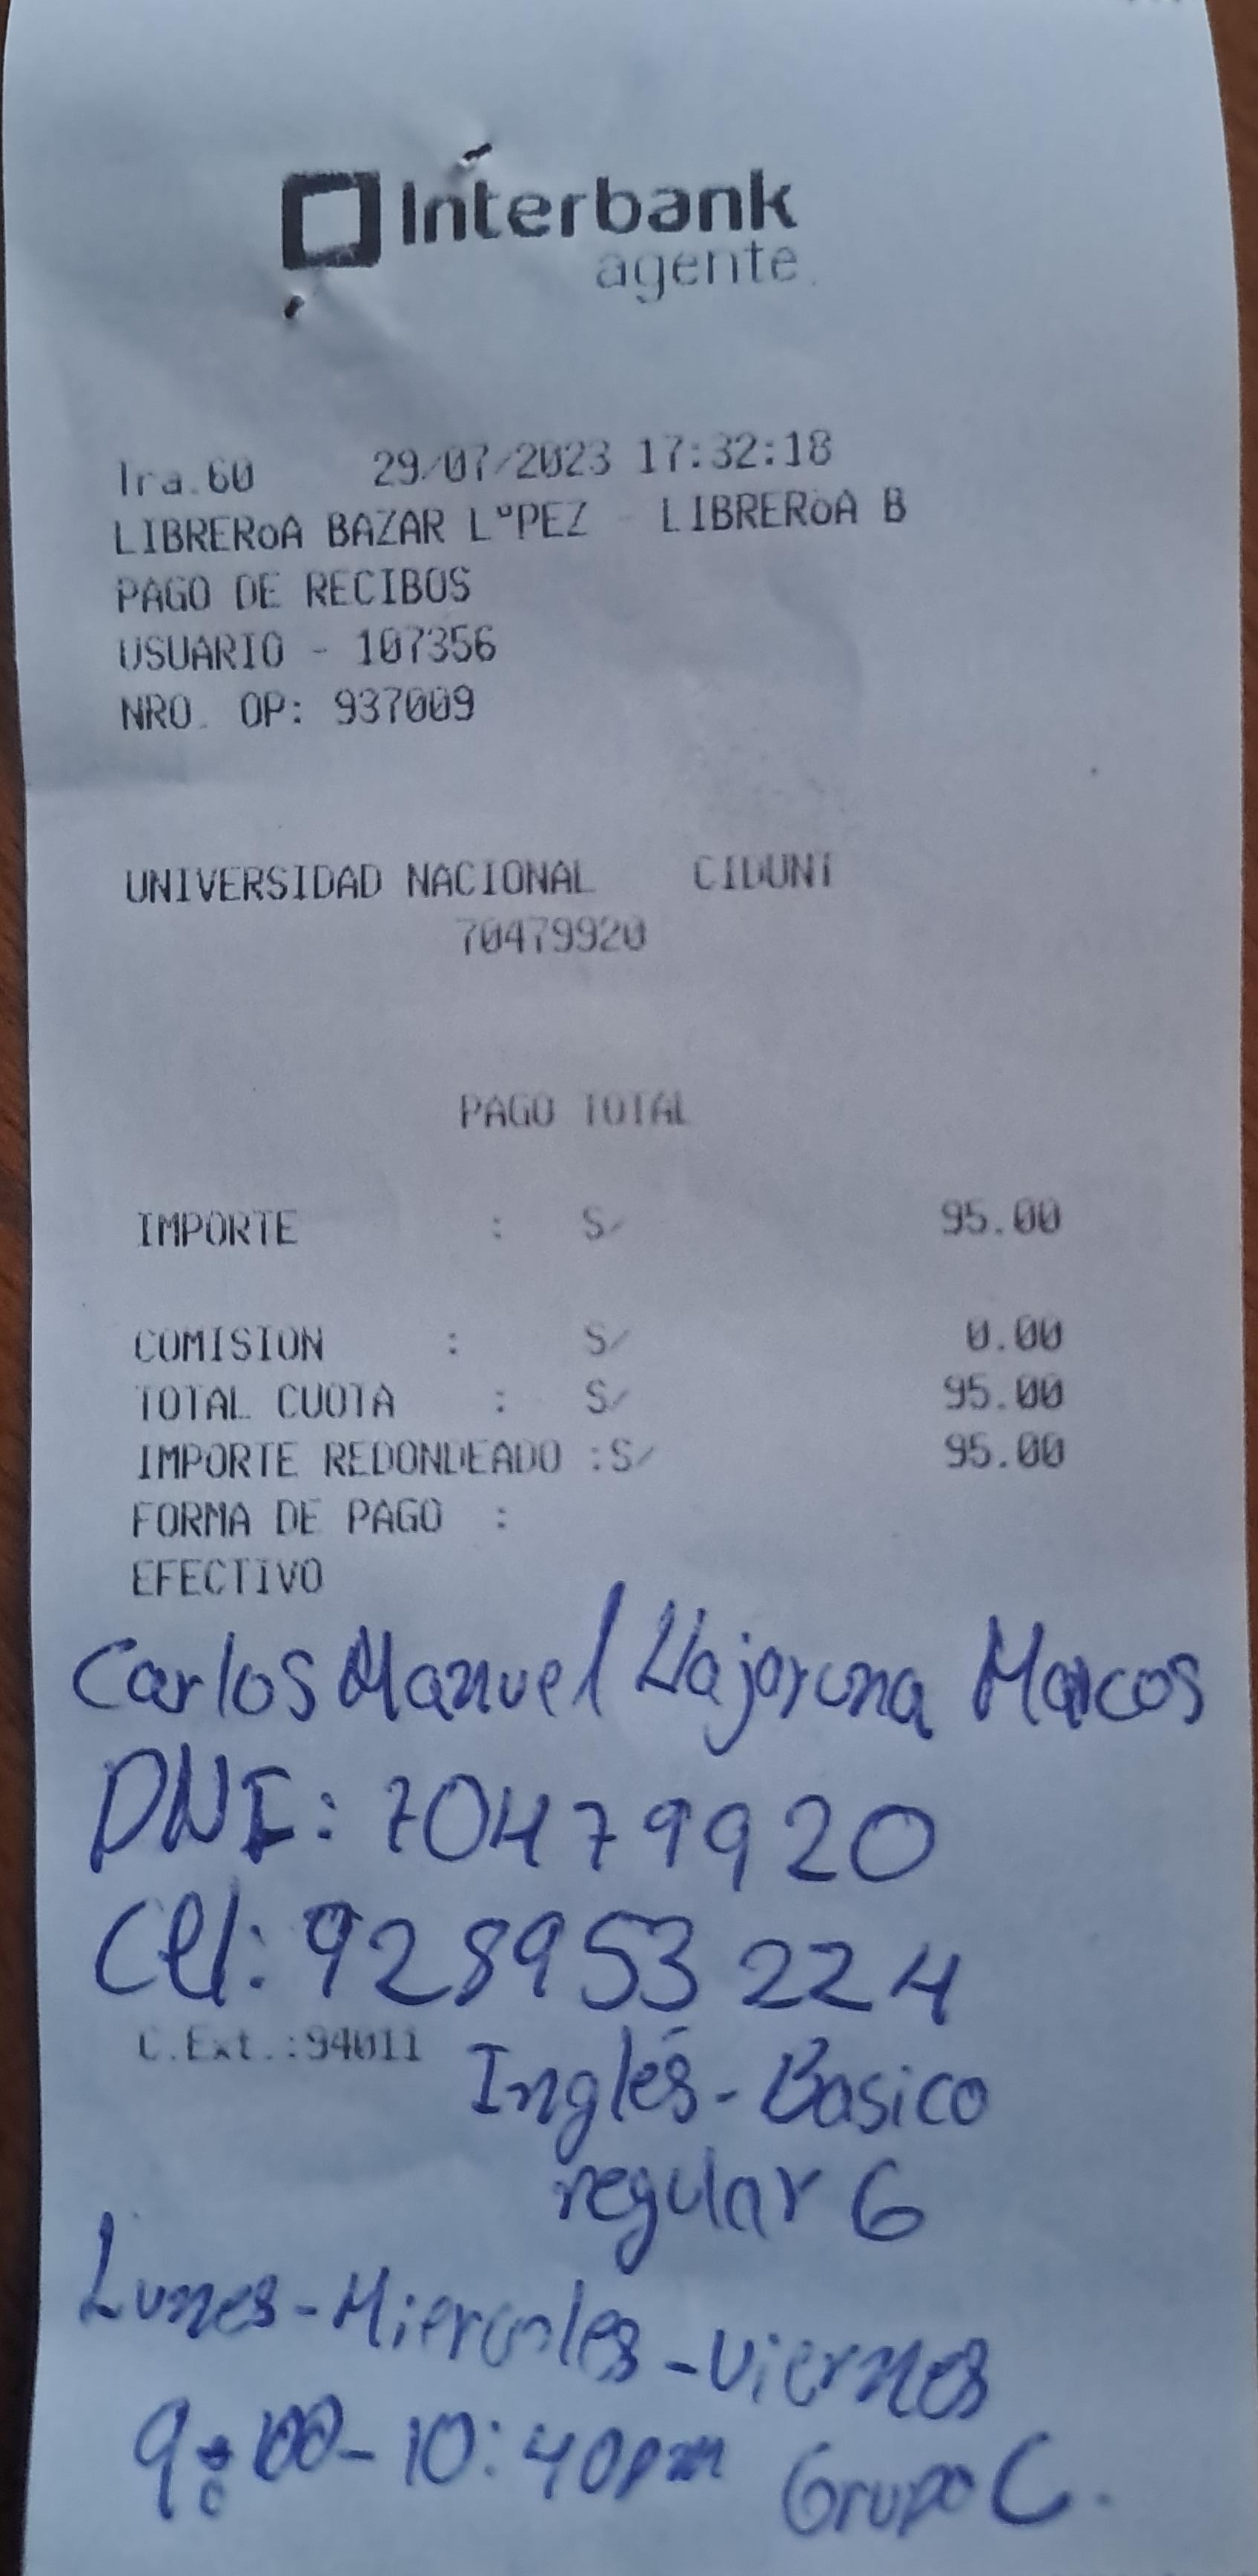 Interbank
agente
Tra.60 29/07/2023 17:32:18
LIBRERoA BAZAR LºPEZ - LIBRERoA B
PAGO DE RECIBOS
USUARIO - 107356
NRO. OP: 937009
UNIVERSIDAD NACIONAL CIDUNT
70479920
PAGO TOTAL
IMPORTE : S/ 95.00
COMISION : S/ 0.00
TOTAL CUOTA : S/ 95.00
IMPORTE REDONDEADO :S/ 95.00
FORMA DE PAGO :
EFECTIVO
Carlos Manuel Llajaruna Marcos
DNI: 70479920
Cel: 928953224
C.Ext.:94011
Inglés - Basico
regular 6
Lunes - Miercoles - viernes
9:00 - 10:40pm Grupo C.